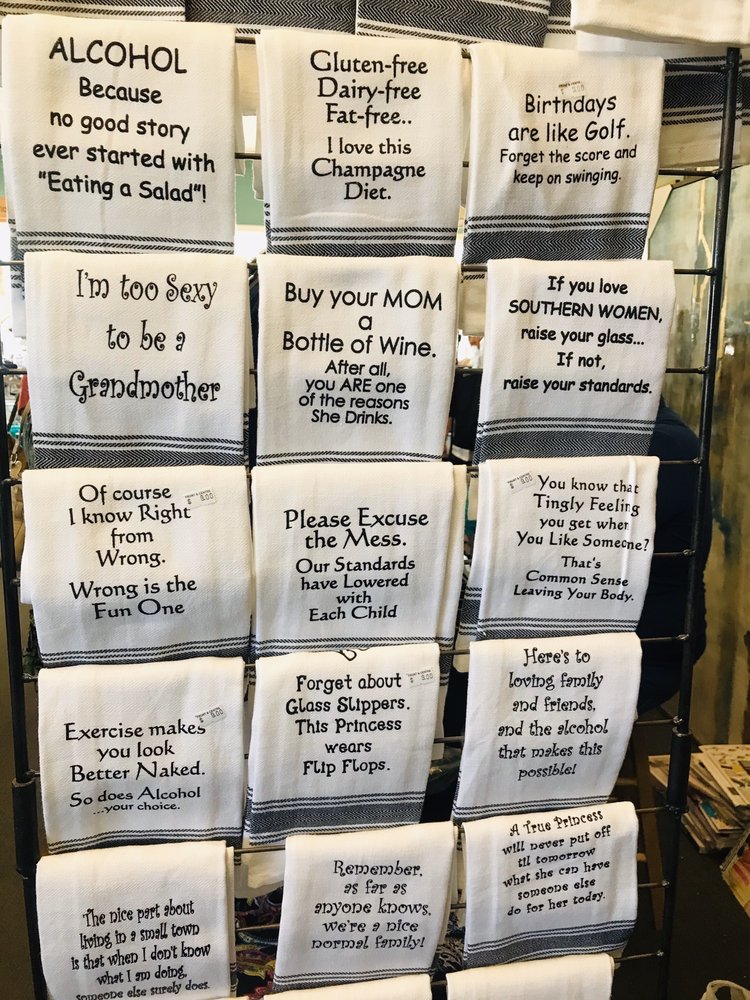 ALCOHOL
Because
no good story
ever started with
"Eating a Salad"!
Gluten-free
Dairy-free
Fat-free..
I love this
Champagne
Diet.
Birthdays
are like Golf.
Forget the score and
keep on swinging.
I'm too Sexy
to be a
Grandmother
Buy your MOM
a
Bottle of Wine.
After all,
you ARE one
of the reasons
She Drinks.
If you love
SOUTHERN WOMEN,
raise your glass...
If not,
raise your standards.
Of course
I know Right
from
Wrong.
Wrong is the
Fun One
$ 8.00
Please Excuse
the Mess.
Our Standards
have Lowered
with
Each Child
You know that
Tingly Feeling
you get when
You Like Someone?
That's
Common Sense
Leaving Your Body.
Exercise makes
you look
Better Naked.
So does Alcohol
...your choice.
$ 8.00
Forget about
Glass Slippers.
This Princess
wears
Flip Flops.
$ 8.00
Here's to
loving family
and friends,
and the alcohol
that makes this
possible!
The nice part about
living in a small town
is that when I don't know
what I am doing,
someone else surely does.
Remember,
as far as
anyone knows,
we're a nice
normal family!
A True Princess
will never put off
til tomorrow
what she can have
someone else
do for her today.